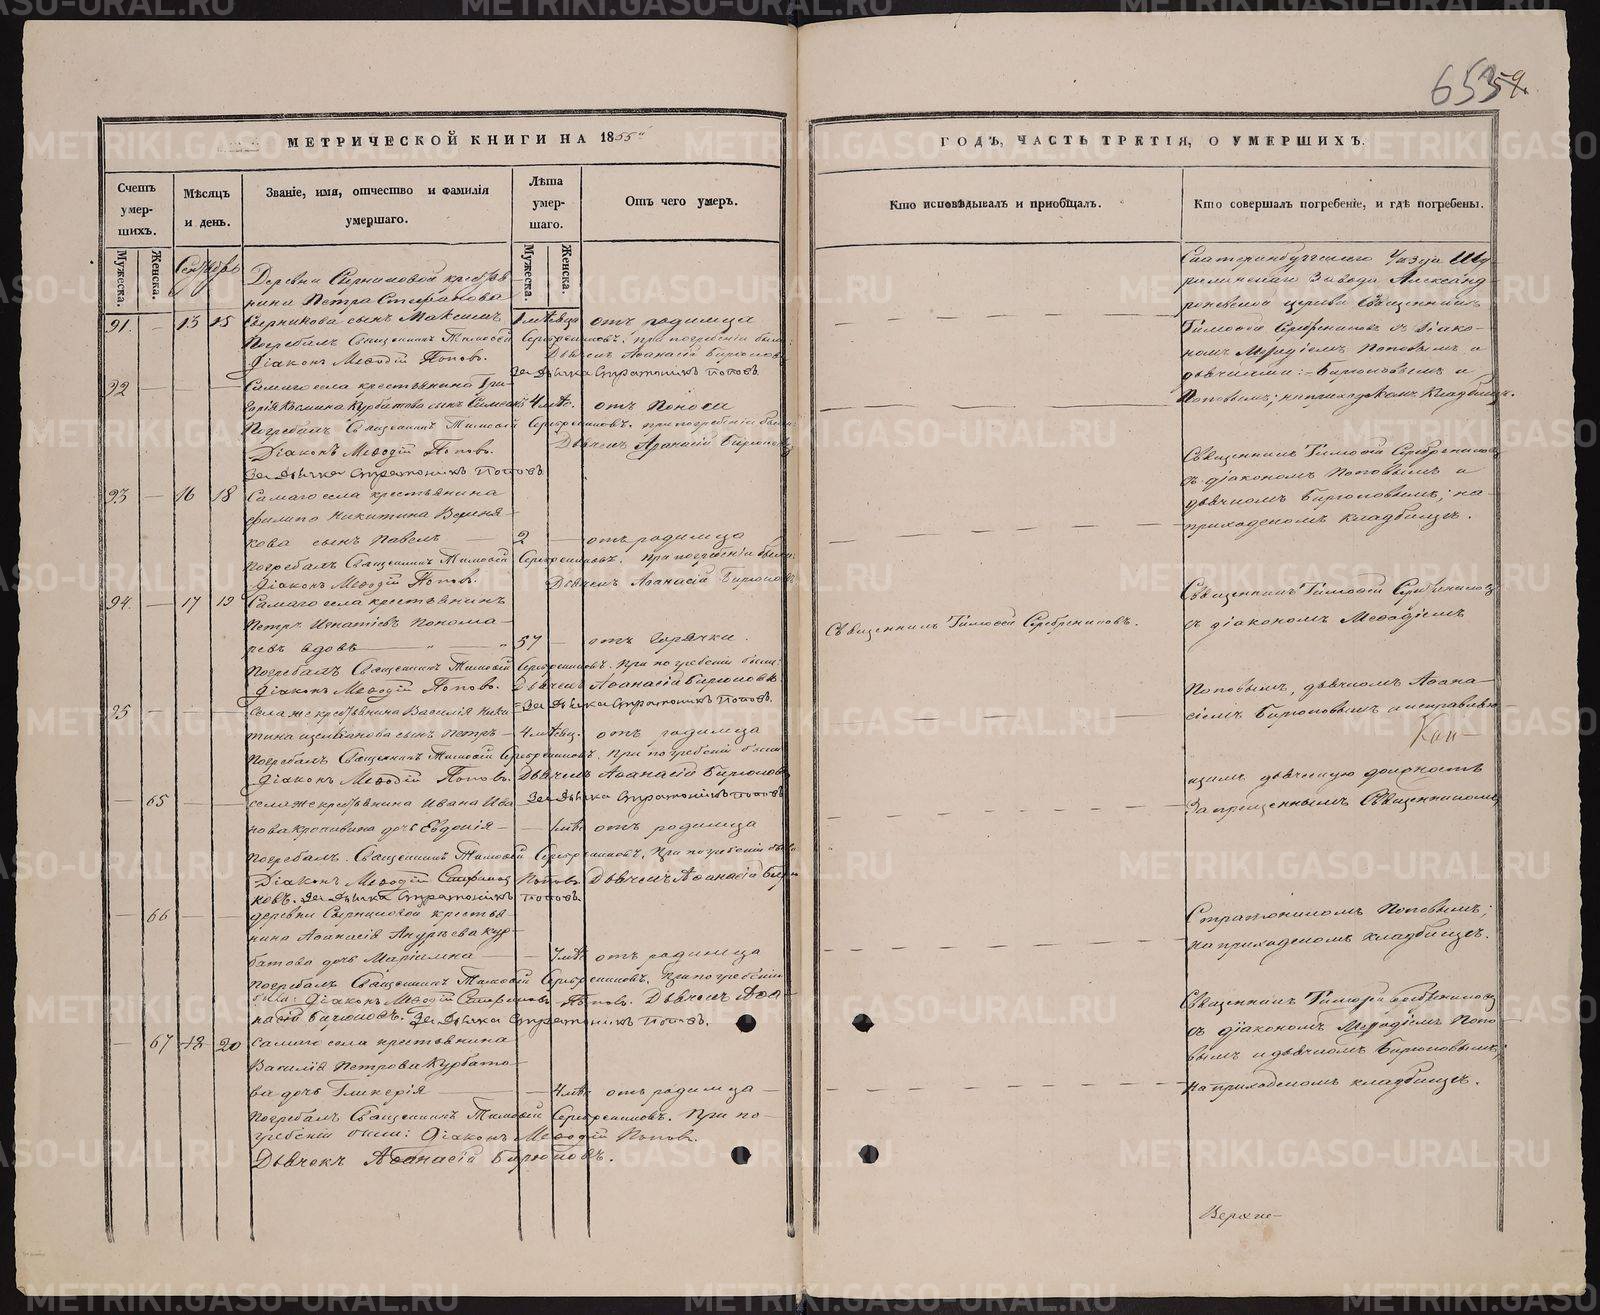 653 59.
МЕТРИЧЕСКОЙ КНИГИ НА 1855й
ГОДЪ, ЧАСТЬ ТРЕТІЯ, О УМЕРШИХЪ.
Счетъ умер-шихъ.
Мѣсяцъ и день.
Званіе, имя, отчество и фамилія умершаго.
Лѣта умер-шаго.
Отъ чего умеръ.
Кто исповѣдывалъ и пріобщалъ.
Кто совершалъ погребеніе, и гдѣ погребены.
Мужеска.
Женска.
Мужеска.
Женска.
Сентябрь
нина Петра Стефанова
91. 13 15 сынъ Максимъ отъ родимца
Погребалъ Священникъ Тимоѳей Серебренниковъ. При погребеніи были
Діаконъ Меѳодій Поповъ. Дьячекъ Аѳанасій Бирюковъ
За Дьячка Стратоникъ Поповъ
92 Самаго села крестьянина Гри-
горія Космина Курбатова сынъ Симеонъ 4 отъ поноса
Погребалъ Священникъ Тимоѳей Серебренниковъ. При погребеніи были
Діаконъ Меѳодій Поповъ. Дьячекъ Аѳанасій Бирюковъ
За Дьячка Стратоникъ Поповъ
93 16 18 Самаго села крестьянина
Филипа Никитина
кова сынъ Павелъ 2 отъ родимца
Погребалъ Священникъ Тимоѳей Серебренниковъ. При погребеніи были
Діаконъ Меѳодій Поповъ. Дьячекъ Аѳанасій Бирюковъ
94. 17 19 Самаго села крестьянинъ
Петръ Игнатіевъ Понома-
ревъ вдовъ 57 отъ горячки.
Погребалъ Священникъ Тимоѳей Серебренниковъ. При погребеніи были:
Діаконъ Меѳодій Поповъ. Дьячекъ Аѳанасій Бирюковъ.
За Дьячка Стратоникъ Поповъ.
95 села же крестьянина Василія Ники-
тина сынъ Петръ 4 отъ родимца
Погребалъ Священникъ Тимоѳей Серебренниковъ. При погребеніи были
Діаконъ Меѳодій Поповъ. Дьячекъ Аѳанасій Бирюковъ
За Дьячка Стратоникъ Поповъ
65 села же крестьянина Ивана Ива-
нова дочь Евдокія отъ родимца
Погребалъ Священникъ Тимоѳей Серебренниковъ. При погребеніи были
Діаконъ Меѳодій Поповъ. Дьячекъ Аѳанасій Бирю-
ковъ. За Дьячка Стратоникъ Поповъ
66 деревни крестья-
нина Аѳанасія Андреева Кур-
батова дочь отъ родимца
Погребалъ Священникъ Тимоѳей Серебренниковъ. При погребеніи
были: Діаконъ Меѳодій Поповъ. Дьячекъ Аѳа-
насій Бирюковъ. За Дьячка Стратоникъ Поповъ.
67 18 20 Самаго села крестьянина
Василія Петрова Курбато-
ва дочь Гликерія отъ родимца
Погребалъ Священникъ Тимоѳей Серебренниковъ. При по-
гребеніи были: Діаконъ Меѳодій Поповъ.
Дьячекъ Аѳанасій Бирюковъ.
Священникъ Тимоѳей Серебренниковъ.
Екатеринбургскаго Уѣзда
Завода Александ-
церкви Священникъ
Тимоѳей Серебренниковъ съ діако-
номъ Меѳодіемъ Поповымъ и
дьячками: Бирюковымъ и
Поповымъ; на приходскомъ кладбищѣ.
Священникъ Тимоѳей Серебренниковъ
съ діакономъ Поповымъ и
дьячкомъ Бирюковымъ; на
приходскомъ кладбищѣ.
Священникъ Тимоѳей Серебренниковъ
съ діакономъ Меѳодіемъ
Поповымъ, дьячкомъ Аѳана-
сіемъ Бирюковымъ и исправляю-
щимъ дьяческую должность
запрещеннымъ Священникомъ
Стратоникомъ Поповымъ;
на приходскомъ кладбищѣ.
Священникъ Тимоѳей Серебренниковъ
съ діакономъ Меѳодіемъ Попо-
вымъ и дьячкомъ Бирюковымъ;
на приходскомъ кладбищѣ.
Верхне-
METRIKI.GASO-URAL.RU